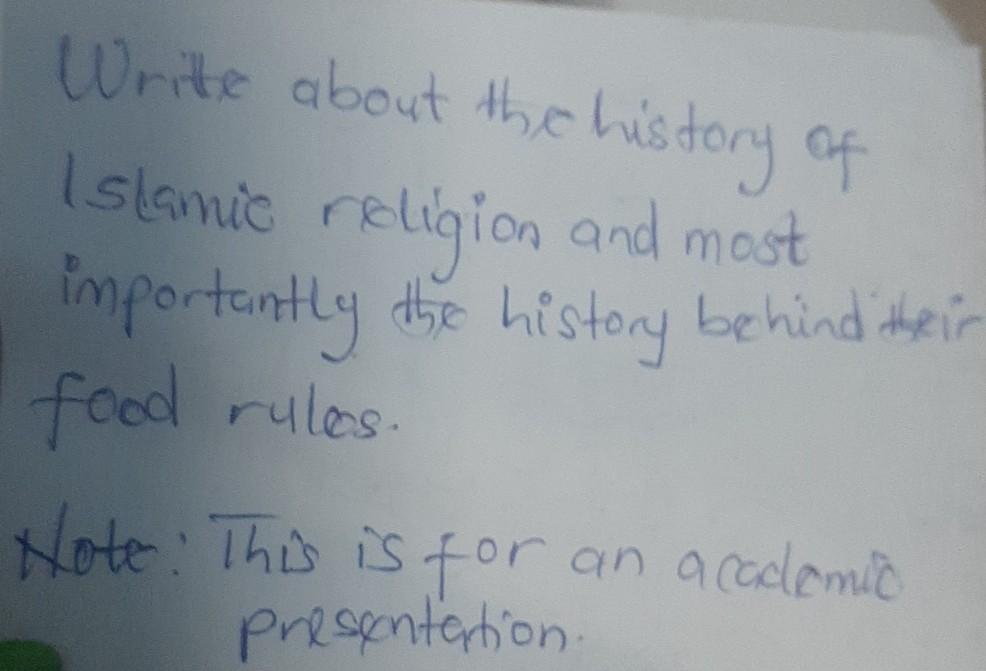 Write about the history of
Islamic religion and most
importantly the history behind their
food rules.
Note: This is for an academic
presentation.